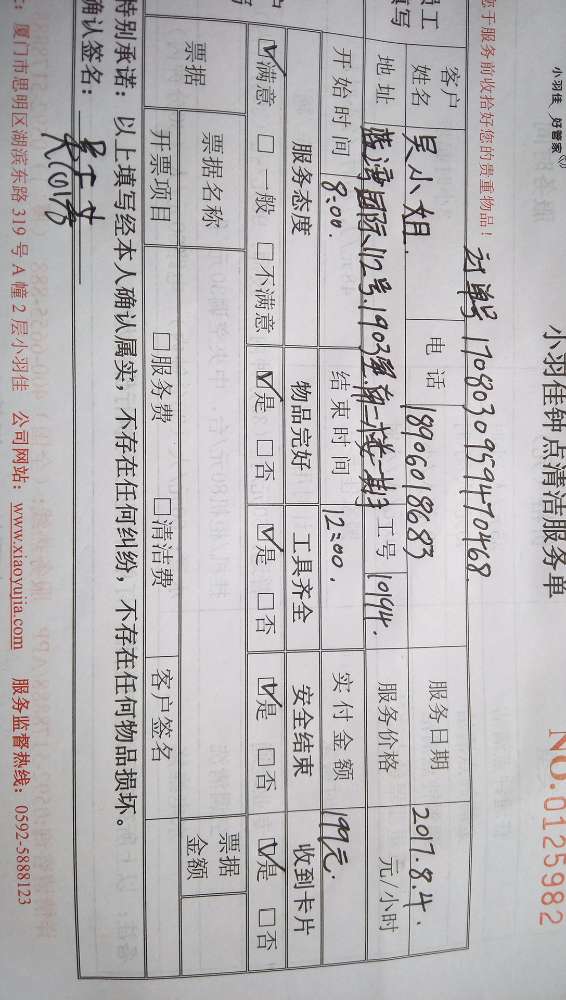 小羽佳 好管家
小羽佳钟点清洁服务单
NO.0125982
您于服务前收拾好您的贵重物品！
订单号 1708030959470468
员工
填写
客户姓名 吴小姐 电话 18906018683 服务日期 2017.8.4.
地址 蓝湾国际112号1903室 工号 1094. 服务价格 元/小时
开始时间 8:00. 结束时间 12:00. 实付金额 199元.
户
服务态度 物品完好 工具齐全 安全结束 收到卡片
☑满意 □一般 □不满意 ☑是 □否 ☑是 □否 ☑是 □否 ☑是 □否
票据 票据名称 票据金额
开票项目 □服务费 □清洁费 客户签名
特别承诺：以上填写经本人确认属实，不存在任何纠纷，不存在任何物品损坏。
确认签名：
厦门市思明区湖滨东路 319 号 A 幢 2 层小羽佳 公司网站：www.xiaoyujia.com 服务监督热线：0592-5888123